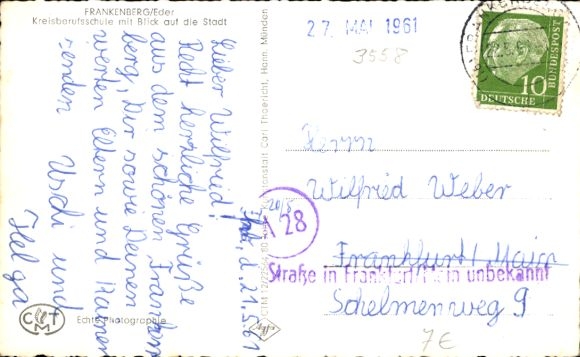 FRANKENBERG/Eder
Kreisberufsschule mit Blick auf die Stadt
27. MAI 1961
3558
10
DEUTSCHE
BUNDESPOST
d. 21.5.61
Lieber Wilfried!
Recht herzliche Grüße
aus dem schönen Franken
berg, Dir sowie Deinen
werten Eltern und
senden Uschi und
Helga
Carl Thoericht, Hann. Münden
Herrn
Wilfried Weber
Frankfurt/Main
Straße in Frankfurt/Main unbekannt
Schelmenweg 9
20/5
A 28
C T M
Echte Photographie
Agfa
7€